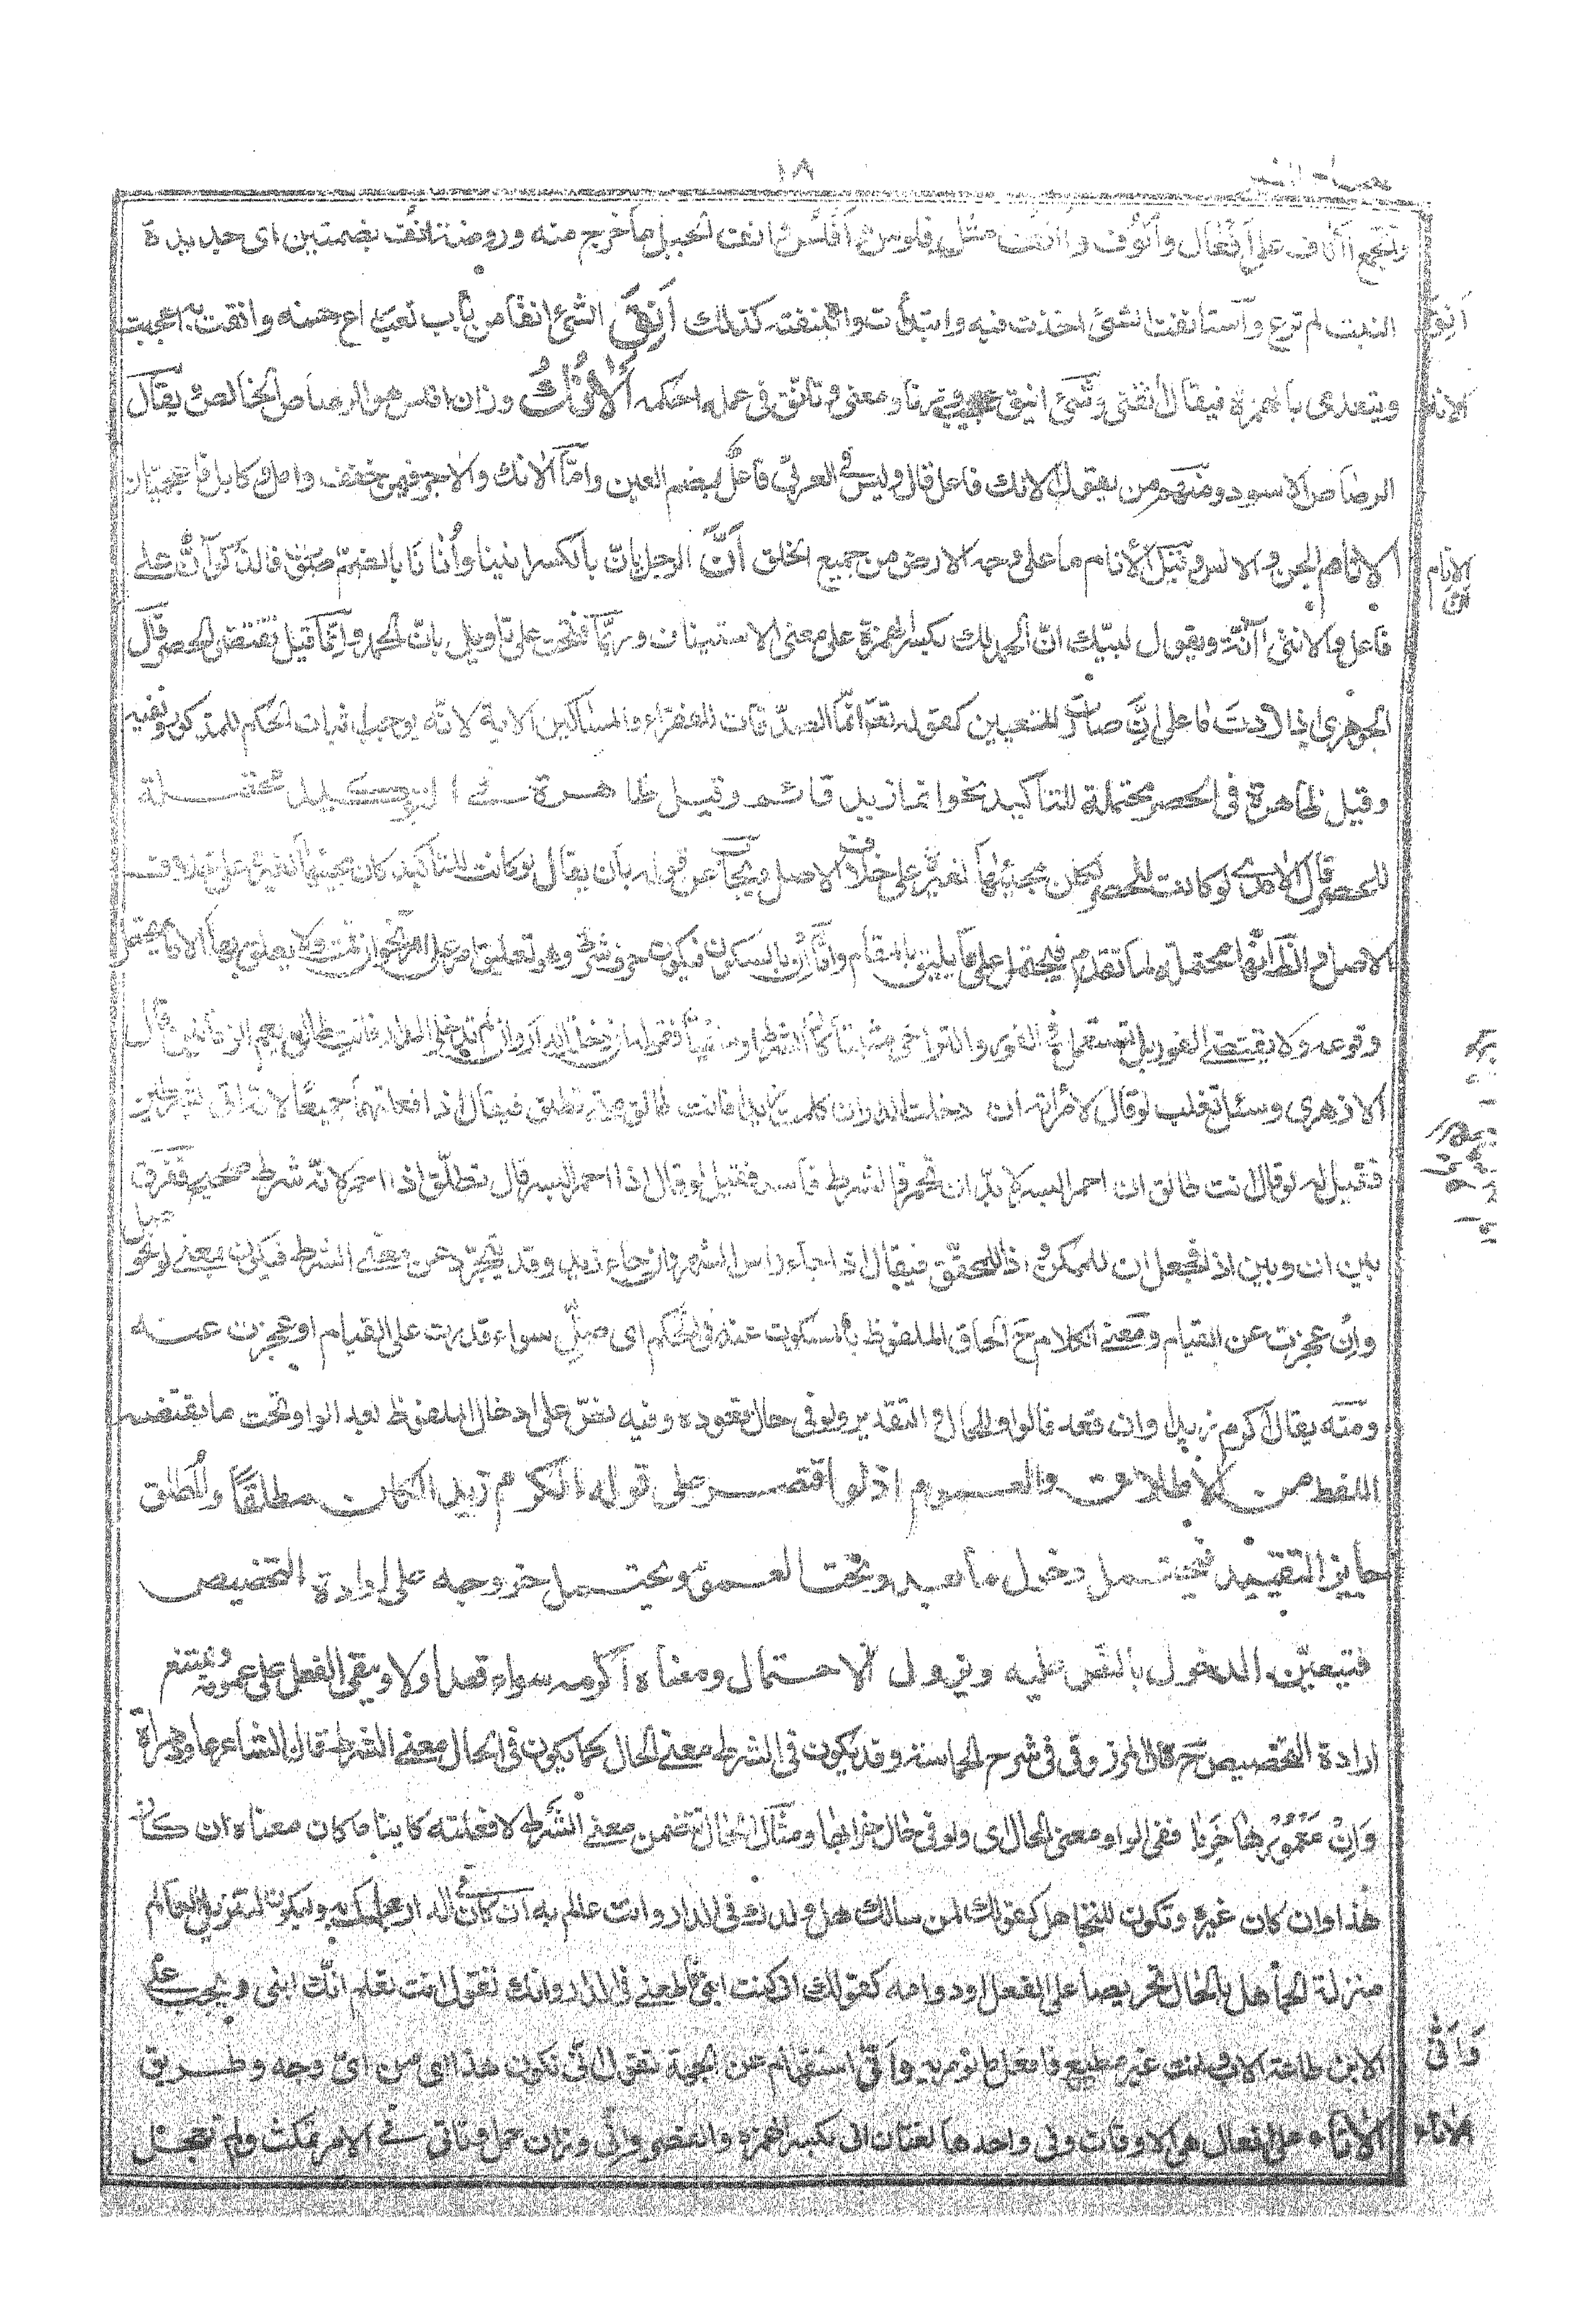 ١٨
والجمع آناف على أفعال وأنوف وآنف مثل فلوس وأفلس وأنف الجبل ما خرج منه وروضة أنف بضمتين اى جديدة
النبت لم ترع واستأنفت الشئ اخذت فيه وابتدأت وائتنفته كذلك أَنِقَ الشئ انقا من باب تعب اع حسنه وانقت به اعجبت
أَنِقَ
ويتعدى بالهمزة فيقال آنقنى وشئ انيق عجيب وزنا ومعنى وتأنق فى عمله احكمه الآنُكُ وزان افلس هو الرصاص الخالص ويقال
الانك
الرصاص الاسود ومنهم من يقول الانك فاعل قال وليس فى العربى فاعل بضم العين واما الانك والاجر فيمن خفف وامل وكابل فاعجميات
الانام الجن والانس وقيل الأنام ما على وجه الارض من جميع الخلق أَنَّ الرجل يان بالكسر انينا وأنانا بالضم صوت فالذكر آنّ على
الانام
انّ
فاعل والانثى آنّة ويقول لبيك انّ الحمد لك بكسر الهمزة على معنى الاستيناف وربما فتحت على تاويل بان الحمد وانما قيل تقتضى الحصر قال
الجوهرى اذا زدت ما على انّ صارت للتعيين كقوله تعا انما الصدقات للفقراء والمساكين الاية لانه يوجب اثبات الحكم للمذكور ونفيه
وقيل ظاهرة فى الحصر محتملة للتاكيد نحو انما زيد قائم وقيل ظاهرة فى التوكيد محتملة
للحصر قال الامدى لو كانت للحصر لكان مجيئها لغيره على خلاف الاصل ويجاب عن قوله بان يقال لو كانت للتاكيد كان مجيئها لغيره على خلاف
الاصل والظ انها محتملة لما تقدم فيحتمل على ما يليق بالمقام واما ان بالسكون فيكون حرف شرط وهو تعليق امر على امر نحو ان قمت ولا يعلق بها الا ما يحتمل
وقوعه ولا يقتضى الفور بل تستعمل فى الفور والتراخى مثبتا كان الشرط او منفيا فقوله ان دخلت الدار وان لم تدخلى الدار فانت طالق يعم الزمانين قال
الازهرى وسئل ثعلب لو قال لامرأته ان دخلت الدار ان كلمت زيدا فانت طالق متى تطلق فيقال اذا فعلتهما جميعا لانه اتى بشرطين
فقيل له لو قال انت طالق ان احمر البسر لا بد ان يحمر قال الشرط فاسد فقيل لو قال اذا احمر البسر قال تطلق اذا احمر لانه شرط صحيح ففرق
بين ان وبين اذا فجعل ان للممكن واذا للمحقق فيقال اذا جاء راس الشهر وان جاء زيد وقد تتجرد عن معنى الشرط فيكون بمعنى لو نحو صل
وان عجزت عن القيام ومعنى الكلام ح الحاق الملفوظ بالمسكوت عنه فى الحكم اى صل سواء قدرت على القيام او عجزت عنه
ومنه يقال اكرم زيدا وان قعد فالواو للحال والتقدير ولو فى حال قعوده وفيه نص على ادخال الملفوظ بعد الواو تحت ما يقتضيه
اللفظ من الاطلاق والعموم اذ لو اقتصر على قوله اكرم زيدا لكان مطلقا والمطلق
جايز التقييد فيحتمل دخول ما بعد وتحت العموم ويحتمل خروجه على ارادة التخصيص
فتيعين الدخول بالنص عليه ويزول الاحتمال ومعناه اكرمه سواء قعد اولا ويبقى الفعل على عمومه وتمتنع
ارادة التخصيص ح قال المرزوقى فى شرح الحماسة وقد يكون فى الشرط معنى الحال كما يكون فى الحال معنى الشرط قال الشاعر عاود هراة
وَانْ مَعْمُوْرها خَرِبَا ففى الواو معنى الحال اى ولو فى حال خرابها ومثال الحال تضمن معنى الشرط لافعلنه كاينا ما كان معناه ان كان
هذا وان كان غيره وتكون للتجاهل كقولك لمن سالك هل ولدك فى الدار وانت عالم به ان كان فى الدار اعلمتك به وتكون لتنزيل العالم
منزلة الجاهل بالحال تحريصا على الفعل او دوامه كقولك ان كنت ابنى فاطعنى وانك تقول انت تعلم انك ابنى ويجب على
الابن طاعة الاب وانت غير مطيع فافعل ما تومر به وانّى استفهام عن الجهة تقول انّى تكون هذا اى من اى وجه وطريق
وَاَنّى
الآناء على افعال هى الاوقات وفى واحدها لغتان انى بكسر الهمزة والقصر وانى وزان حمل وتانى فى الامر تمكث ولم تعجل
الاناء